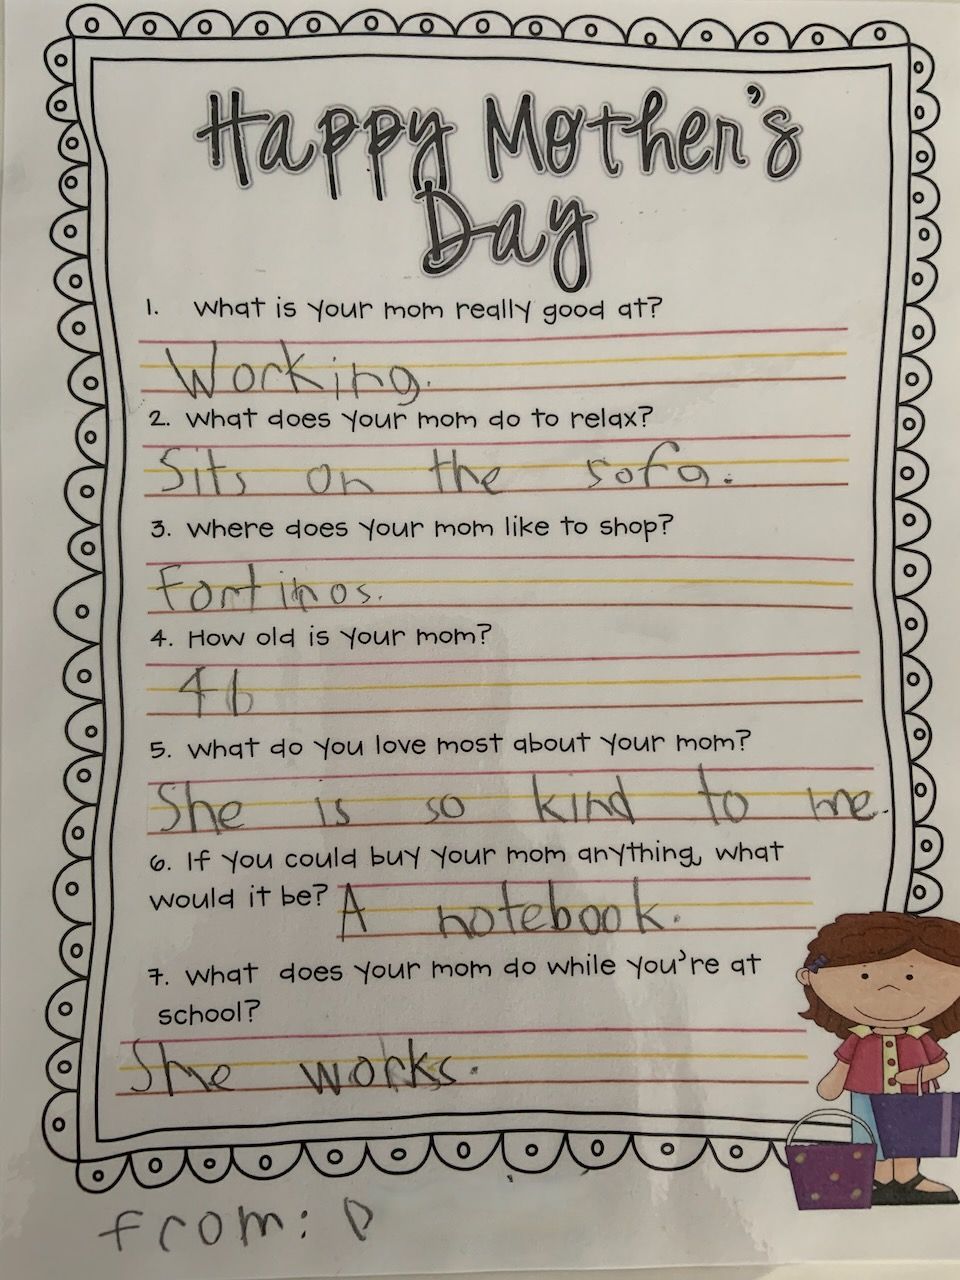 Happy Mother's
Day
1. What is your mom really good at?
Working.
2. What does your mom do to relax?
Sits on the sofa.
3. Where does your mom like to shop?
Fortinos.
4. How old is your mom?
46
5. What do you love most about your mom?
She is so kind to me.
6. If you could buy your mom anything, what
would it be? A notebook.
7. What does your mom do while you're at
school?
She works.
from: D